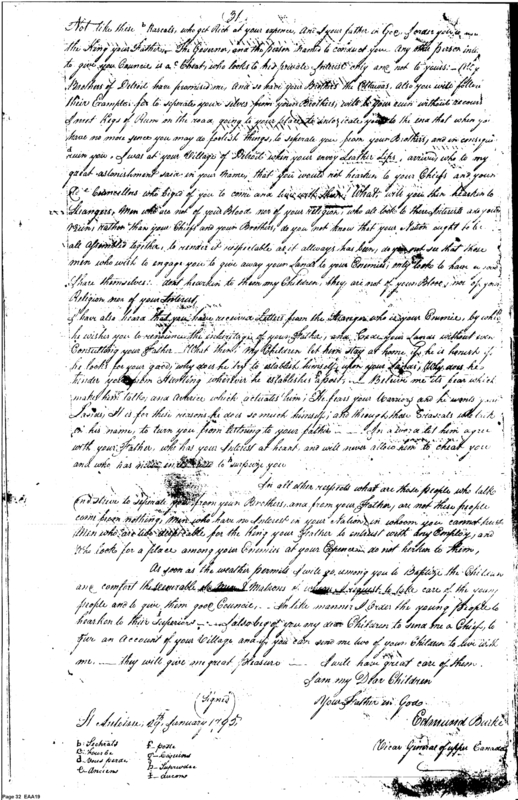 31
Not like these Rascals, who get Rich at your expence, And your father in God orders you
the King your Father — The Governor, and the person Named to conduct you. Any other person
to give you Councils is a Cheat, who looks to his private Interest only and not to yours: — My
Brothers of Detroit have promised me, and so have your Brothers the Ottawas. Also you will follow
their Example. for to seperate your selves from your Brothers, will be your ruin without
Kegs of Rum on the road, going to your place to intoxicate you to the end that when you
have no more sence you may do foolish things, to seperate you from your Brothers, and in
ruin you, I was at your Village of Detroit when your envoy Leather Lips, arrived who to my
great astonishment said in your Name, that you would not hearken to your Chiefs and your
Councellors who begged of you to come and live with them. What will you then hearken to
Strangers, Men who are not of your Blood nor of your religion, who all look to their Interests and
ruin; rather than your Chiefs and your Brothers, do you not know that your Nation ought to be
all Assembled together, to render it respectable as it allways has been, do you not see that these
men who wish to engage you to give away your Lands to your Enemies; only look to have a
share themselves: dont hearken to them my Children, they are not of your Blood, nor of your
Religion nor of your Interest
I have also heard that you have received Letters from the Stranger who is your Enemie, by which
he wishes you to renounce the inheritage of your Father, and Cede your Lands without even
Consulting your Father — What then, my Children let him stay at home, if he is honest if
he looks for your good; why does he try to establish himself upon your Lands; Why does he
hinder you from Hunting wherever he establishes a post. — Believe me its fear which
makes him talk, and Avarice which actuates him; He fears your Warriors and he wants your
Lands; It is for these reasons he does so much himself; and through those Rascals who talk
in his name, to turn you from listening to your father — In a word let him agree
with your Father, who has your Interest at heart, and will never allow him to cheat you
and who has to surprize you
In all other respects what are those people who talk
and strive to seperate you from your Brothers, and from your Father, are not these people
come from nothing, Men who have no Interest in your Nation, in whom you cannot trust
Men who are too despicable for the King your Father to entrust with any Employ, and
who looks for a place among your Enemies at your Expence; do not harken to them,
As soon as the weather permits I will go, among you to Baptize the Children
and comfort the venerable Matrons & to take care of the young
people and to give them good Councils, In like manner I Order the young People to
hearken to their Superiors — I also beg of you my dear Children to send me a Chief, to
give an Account of your Village and if you can send me two of your Children to live with
me. — they will give me great pleasure — I will have great care of them.
I am my Dear Children
Your Father in God
(Signed)
Edmund Burke
29th January 1795
Vicar General of upper Canada
Page 32 EAA19